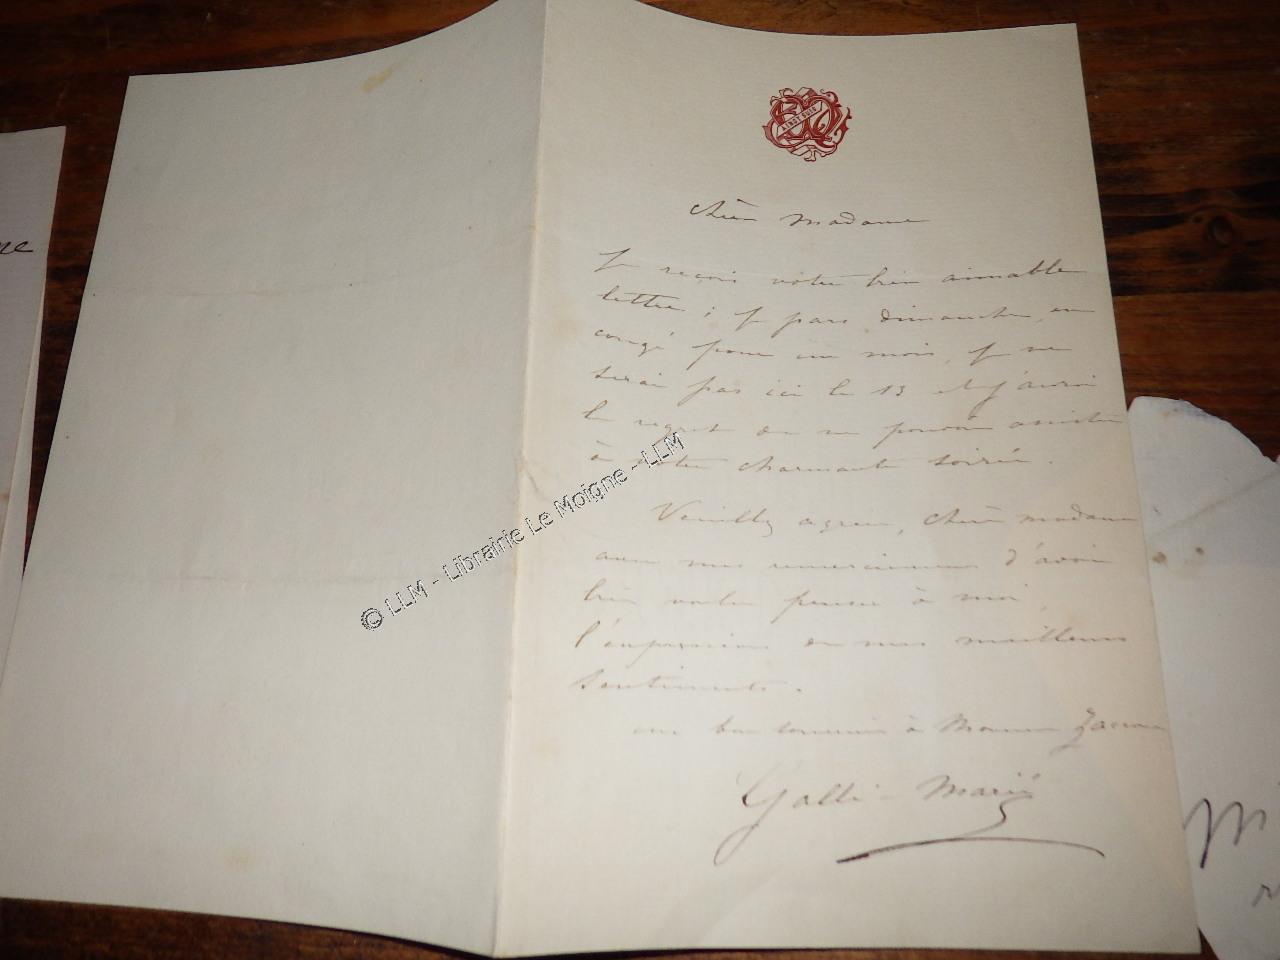 Chère Madame
Je reçois votre bien aimable
lettre ; je pars dimanche en
congé pour un mois, je ne
serai pas ici le 13 et j'aurai
le regret de ne pouvoir assister
à votre charmante soirée.
Veuillez agréer, chère madame
avec mes remerciements d'avoir
bien voulu penser à moi,
l'expression de mes meilleurs
sentiments.
un bon souvenir à Monsieur
Galli-Marié
© LLM - Librairie Le Moigne - LLM